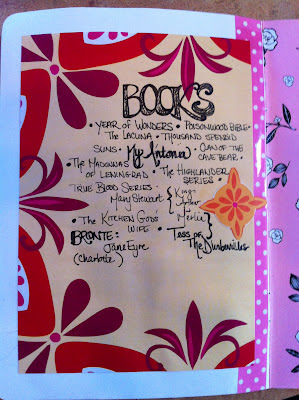 BOOKS
• YEAR OF WONDERS • POISONWOOD BIBLE •
THE LACUNA • THOUSAND SPLENDID
SUNS • My Antonia • CLAN OF THE
CAVE BEAR •
• THE MADONNAS • THE HIGHLANDER
OF LENINGRAD • SERIES •
TRUE BLOOD SERIES
Mary Stewart { King
Arthur
Merlin }
• THE KITCHEN GODS'
WIFE • Tess of
The Durbervilles
BRONTE:
Jane Eyre
(Charlotte)